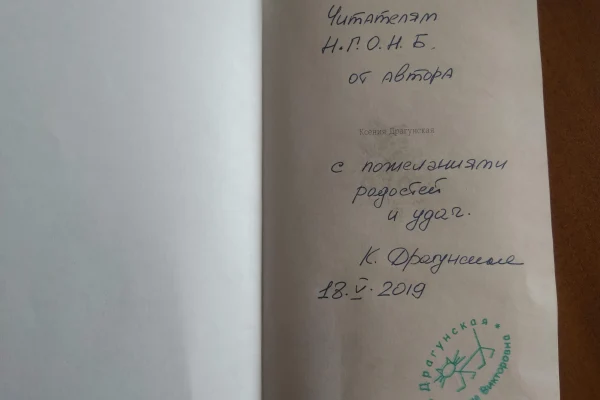 Читателям
Н.Г.О.Н.Б.
от автора
Ксения Драгунская
с пожеланиями
радостей
и удач.
К. Драгунская
18.V.2019
Драгунская
Викторовна